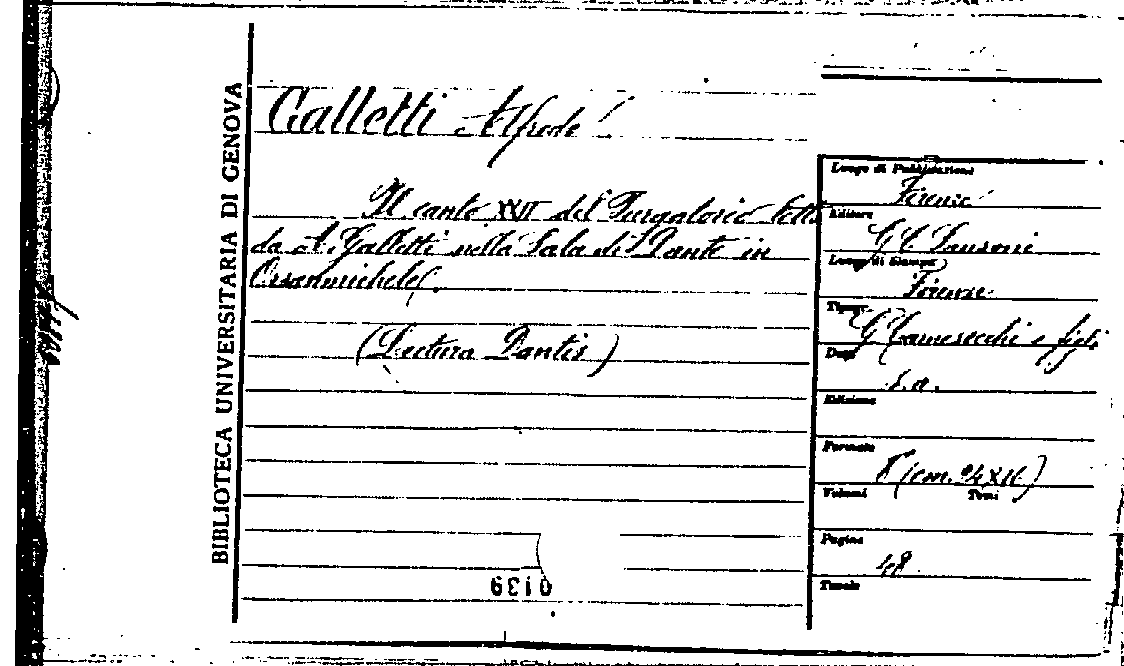 BIBLIOTECA UNIVERSITARIA DI GENOVA
Galletti Alfredo
Il canto XVII del Purgatorio letto
da A. Galletti nella Sala di Dante in
Orsanmichele.
(Lectura Dantis)
0139
Luogo di Pubblicazione
Firenze
Editore
G. C. Sansoni
Luogo di Stampa
Firenze
Tipogr.
G. Carnesecchi e figli
Data
s. a.
Edizione
Formato
8° (cm. 24X16)
Volumi Tomi
Pagine
48
Tavole